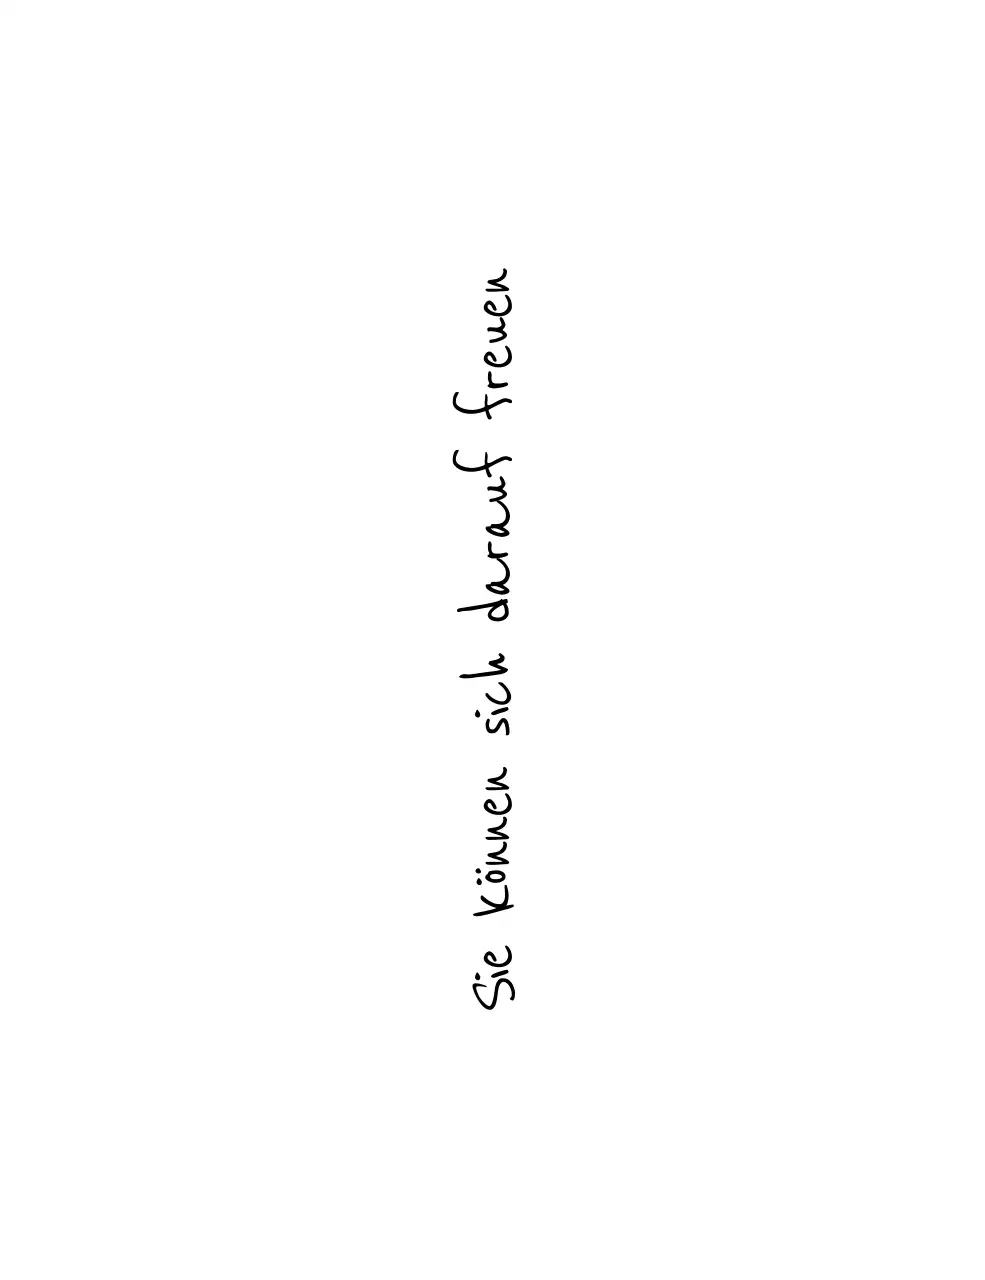 Sie können sich darauf freuen